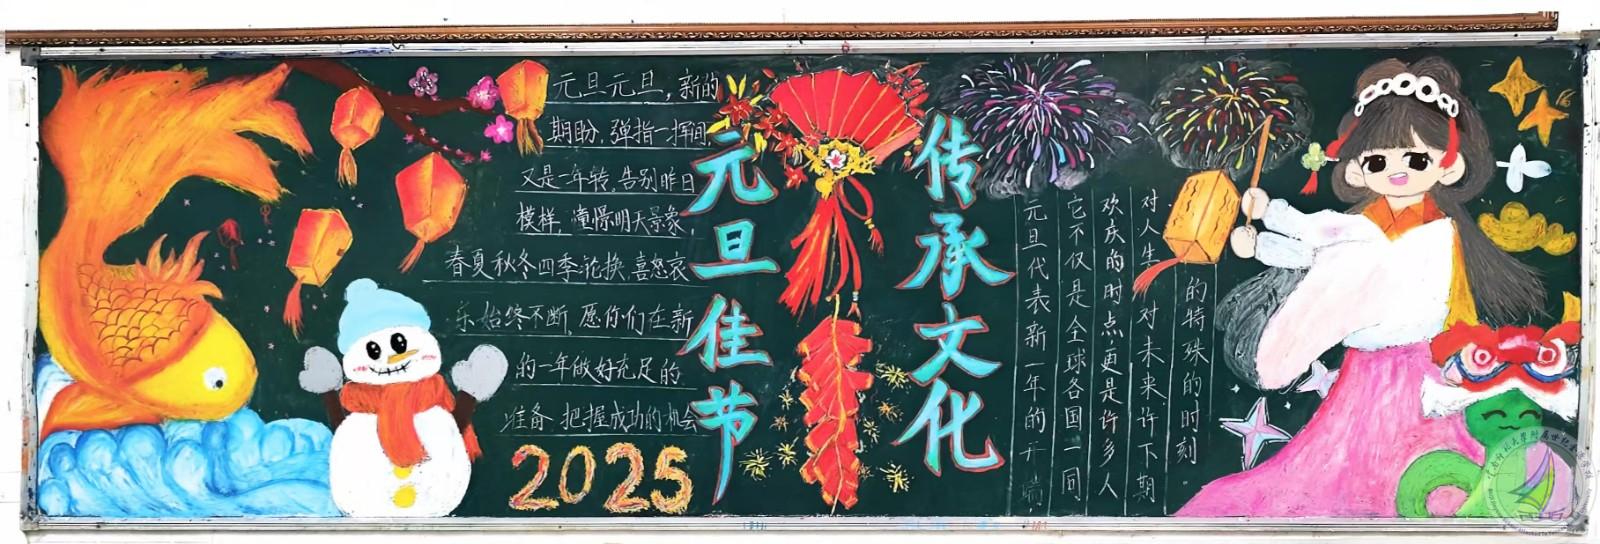 元旦元旦,新的
期盼,弹指一挥间,
又是一年转。告别昨日
模样,憧憬明天景象,
春夏秋冬四季轮换,喜怒哀
乐始终不断,愿你们在新
的一年做好充足的
准备 把握成功的机会
2025
元旦佳节
传承文化
元旦代表新一年的开端,
它不仅是全球各国一同
欢庆的时点更是许多人
对人生、对未来许下期
的特殊的时刻